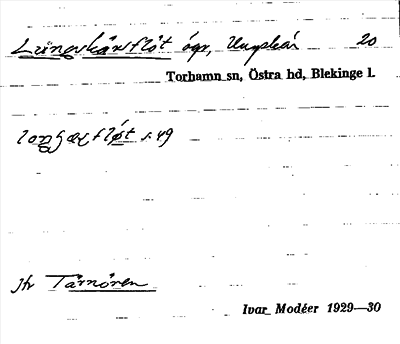 Lungskärsflöt ögr, Ungskär 20
Torhamn sn, Östra hd, Blekinge l.
s. 49
jfr Tärnören
Ivar Modéer 1929—30